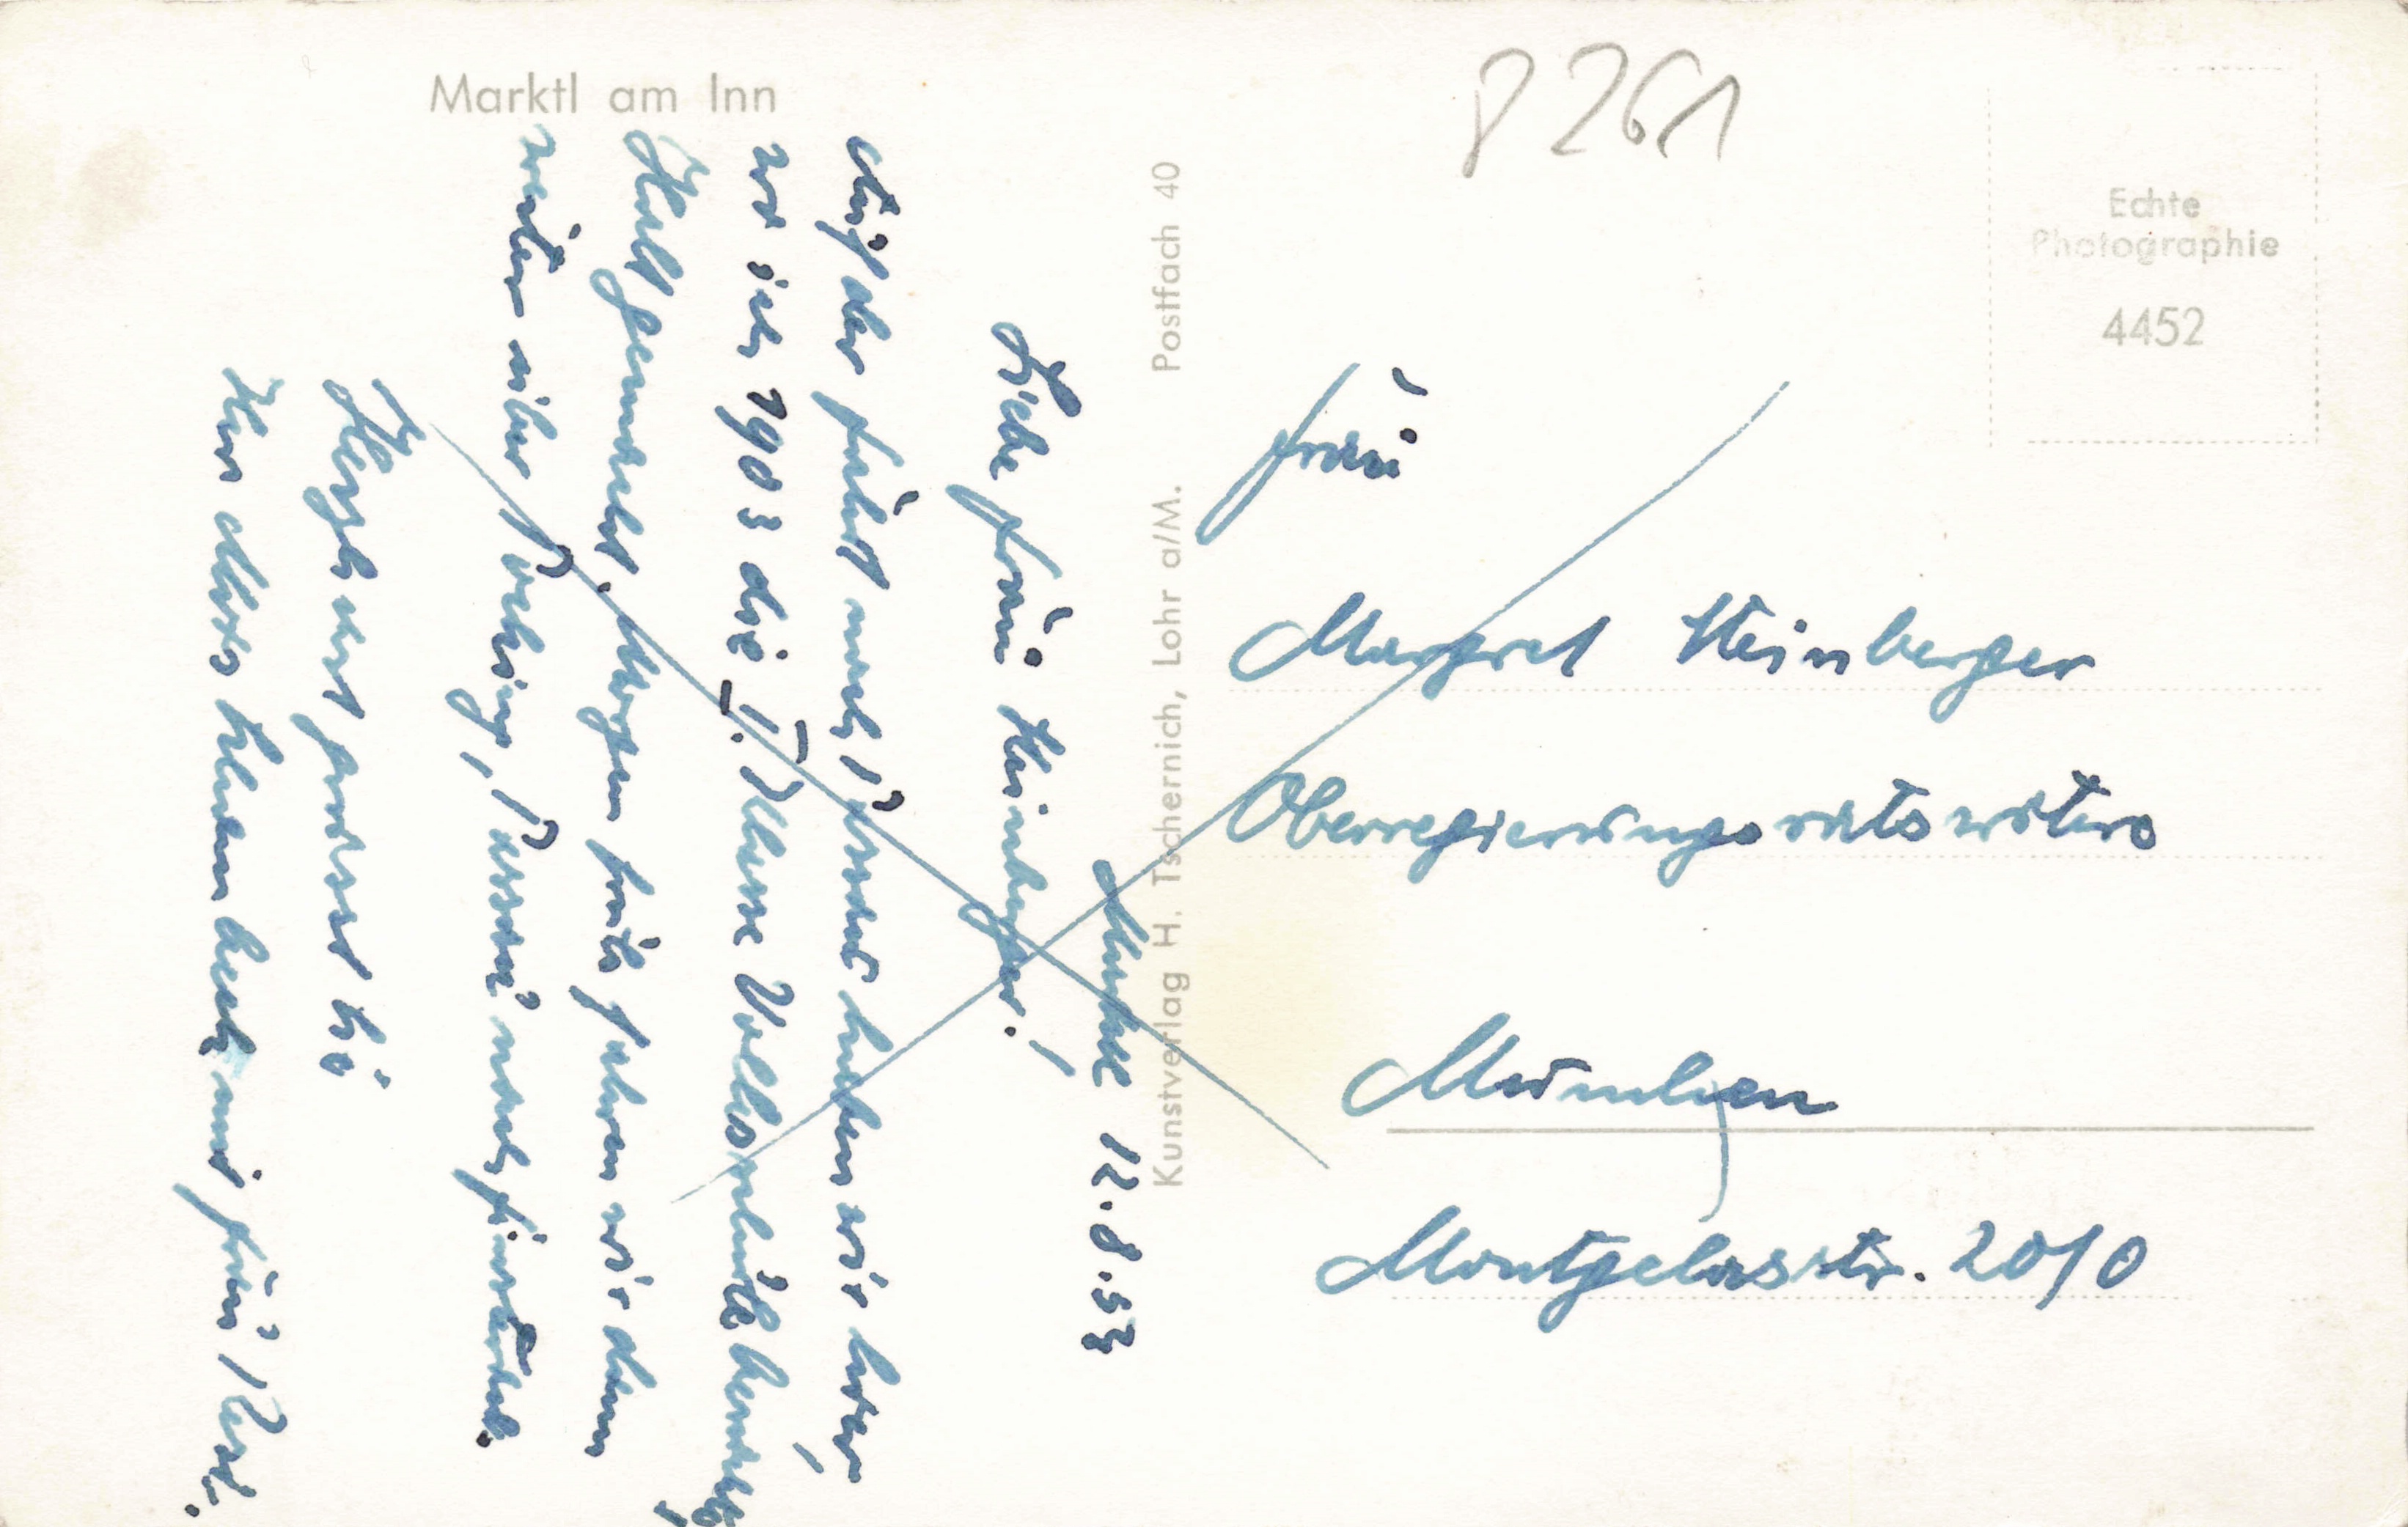 Marktl am Inn
P 261
Echte
Photographie
4452
Kunstverlag H. Tschernich, Lohr a/M. Postfach 40
Marktl 12.8.53
Liebe Frau Steinberger!
Auf der Fahrt nach Passau haben wir hier,
wo ich 1903 die II. Klasse Volksschule besuchte,
Halt gemacht. Morgen früh fahren wir dann
weiter über Pocking, Passau nach
Herzlich grüsst Sie
Ihr Frau Resl.
Frau
Margret Steinberger
Oberregierungsratswitwe
München
Montgelasstr. 20/0